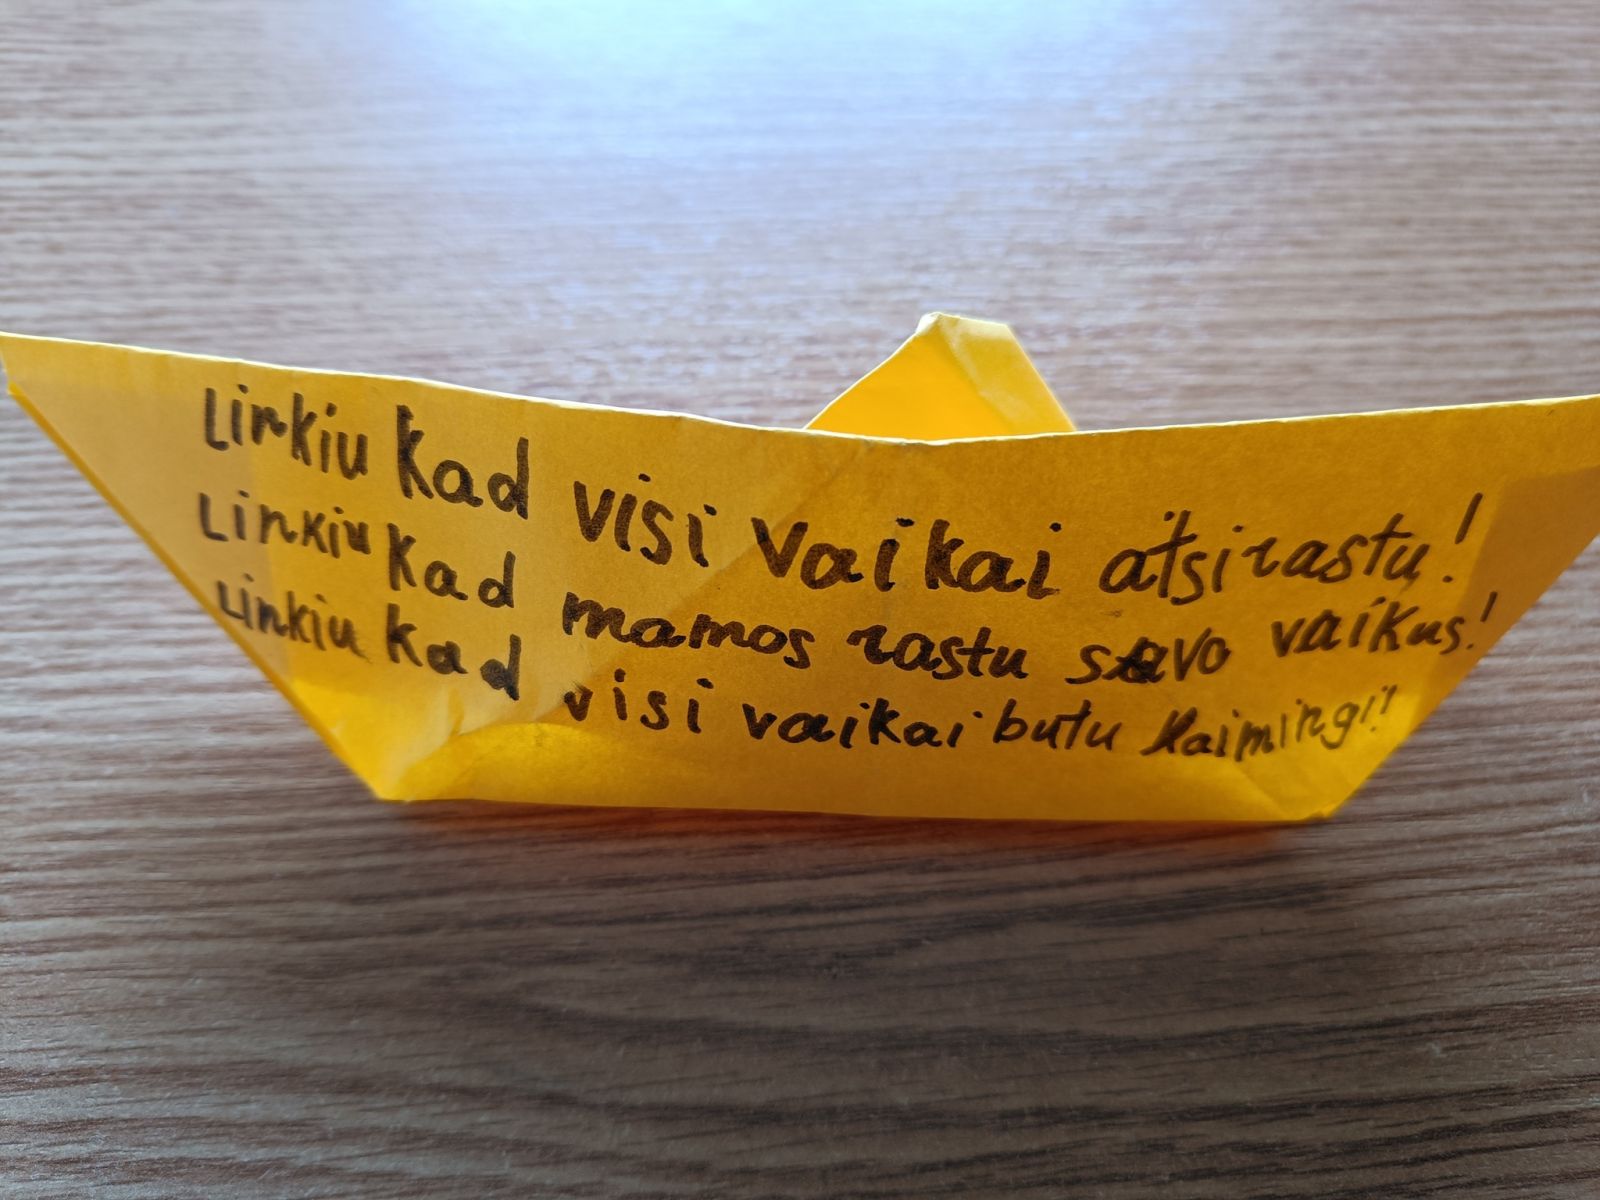 Linkiu kad visi vaikai atsirastų!
Linkiu kad mamos rastu savo vaikus!
Linkiu kad visi vaikai butu laimingi!